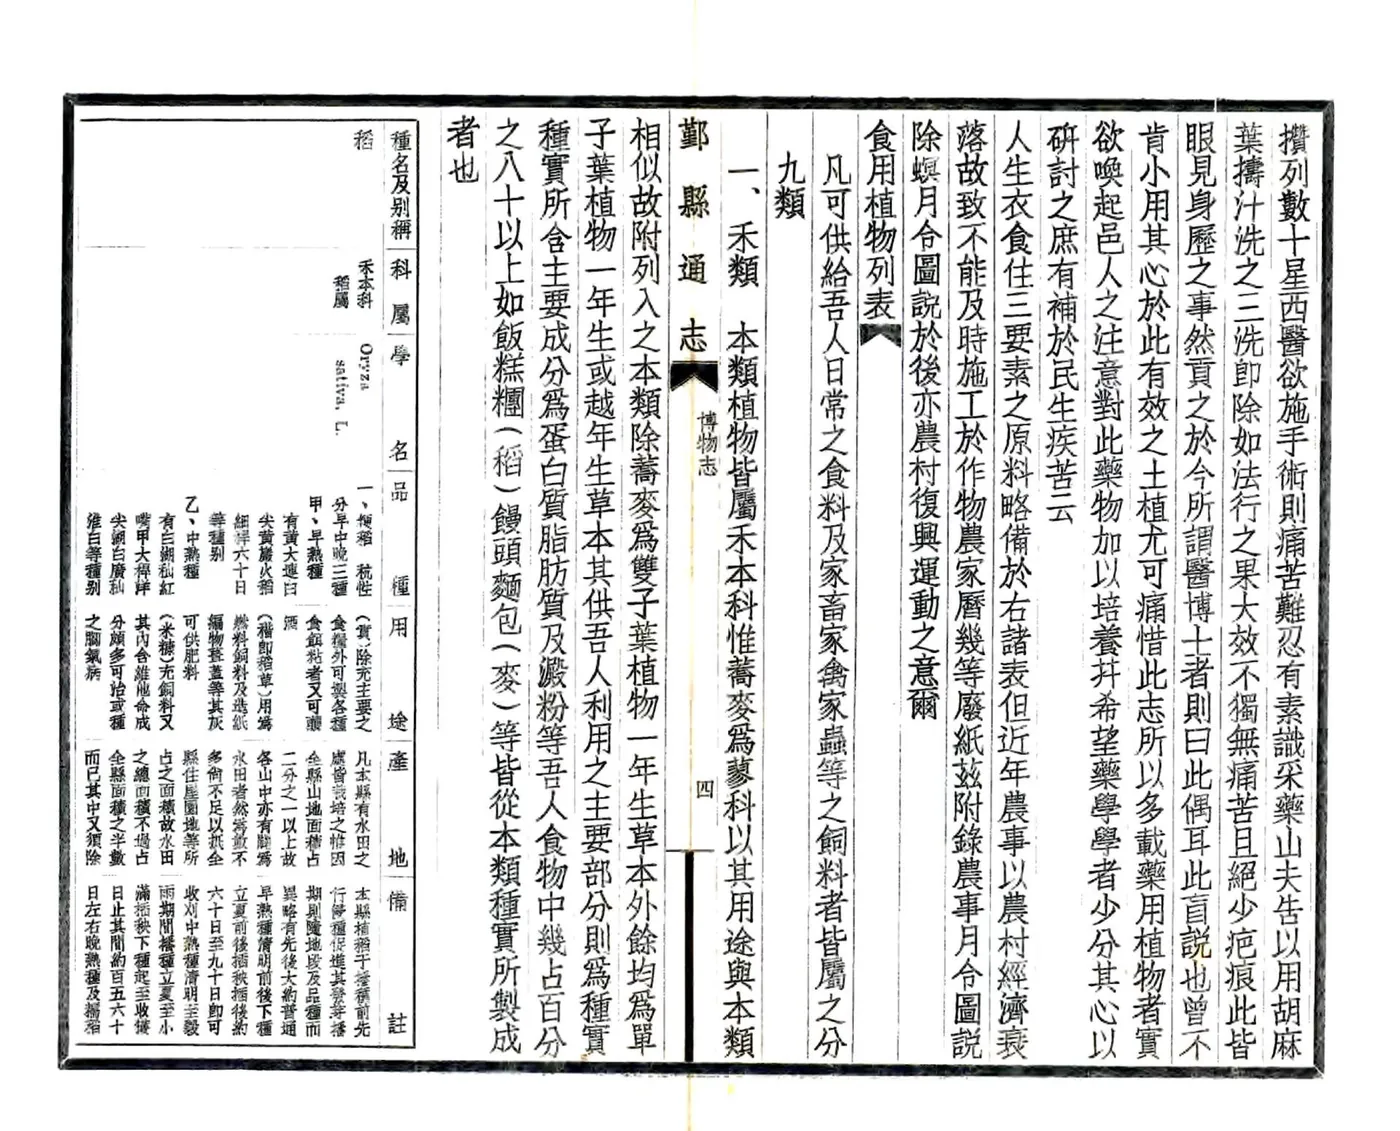 攢列數十星西醫欲施手術則痛苦難忍有素識采藥山夫告以用胡麻
葉擣汁洗之三洗卽除如法行之果大效不獨無痛苦且絕少疤痕此皆
眼見身歷之事然貢之於今所謂醫博士者則曰此偶耳此盲説也曾不
肯小用其心於此有效之土植尤可痛惜此志所以多載藥用植物者實
欲喚起邑人之注意對此藥物加以培養幷希望藥學學者少分其心以
硏討之庶有補於民生疾苦云
人生衣食住三要素之原料略備於右諸表但近年農事以農村經濟衰
落故致不能及時施工於作物農家曆幾等廢紙玆附錄農事月令圖説
除螟月令圖説於後亦農村復興運動之意爾
食用植物列表
凡可供給吾人日常之食料及家畜家禽家蟲等之飼料者皆屬之分
九類
一、禾類 本類植物皆屬禾本科惟蕎麥爲蓼科以其用途與本類
鄞縣通志
博物志
四
相似故附列入之本類除蕎麥爲雙子葉植物一年生草本外餘均爲單
子葉植物一年生或越年生草本其供吾人利用之主要部分則爲種實
種實所含主要成分爲蛋白質脂肪質及澱粉等吾人食物中幾占百分
之八十以上如飯糕糰(稻)饅頭麵包(麥)等皆從本類種實所製成
者也
種名及别稱 科屬 學名 品種 用途 產地 備註
稻
禾本科
稻屬
Oryza
sativa, L.
一、稉稻 秔性
分早中晚三種
甲、早熟種
有黃大連白
尖黃巖火稻
細稈六十日
等種别
乙、中熟種
有白湖秈紅
嘴甲大稈洋
尖湖白廣秈
淮白等種别
(實)除充主要之
食糧外可製各種
食餌粘者又可釀
酒
(稭卽稻草)用爲
燃料飼料及造紙
編物葺蓋等其灰
可供肥料
(米糠)充飼料又
其內含維他命成
分頗多可治或種
之脚氣病
凡本縣有水田之
處皆栽培之惟因
全縣山地面積占
二分之一以上故
各山中亦有闢爲
水田者然爲數不
多尙不足以抵全
縣住屋園地等所
占之面積故水田
之總面積不過占
全縣面積之半數
而已其中又須除
本縣植稻于播種前先
行浸種促進其發芽播
期則隨地段及品種而
異略有先後大約普通
早熟種清明前後下種
立夏前後插秧插後約
六十日至九十日卽可
收刈中熟種清明至穀
雨期間播種立夏至小
滿插秧下種起至收穫
日止其間約百五六十
日左右晚熟種及糯稻